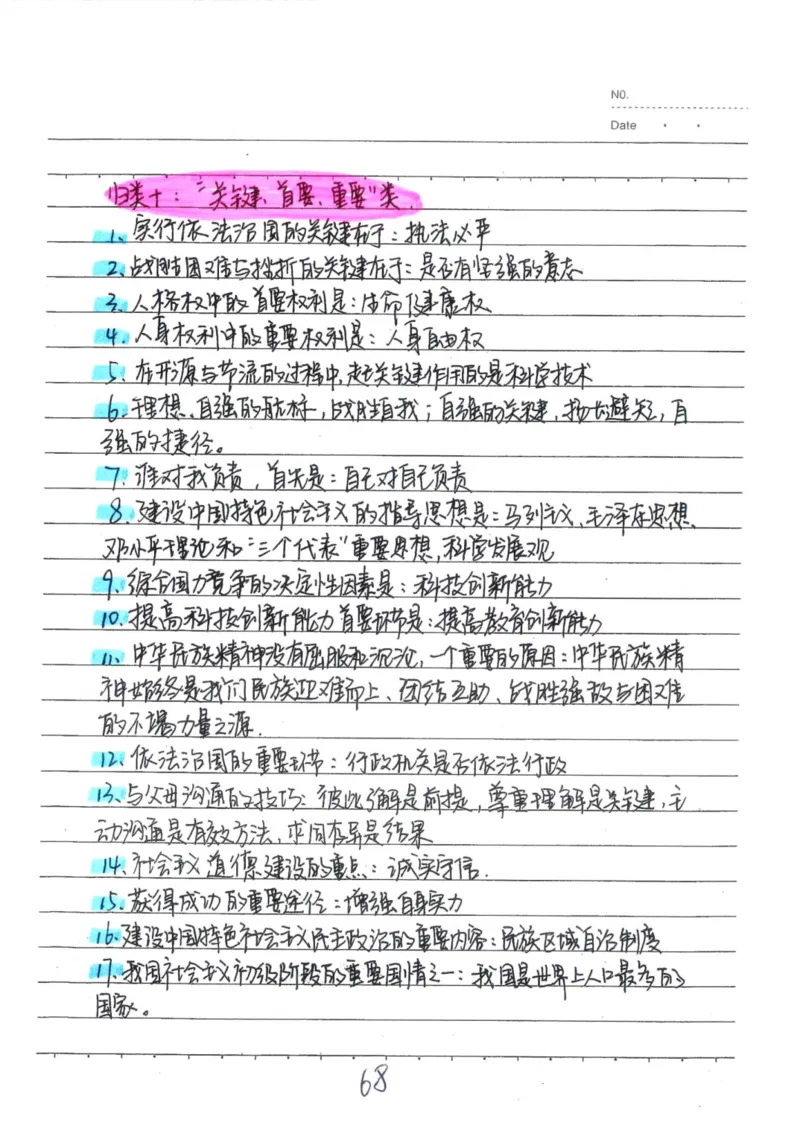 NO.
Date
归类十：“关键、首要、重要”类.
1. 实行依法治国的关键在于：执法必严
2. 战胜困难与挫折的关键在于：是否有坚强的意志
3. 人格权中的首要权利是：生命健康权
4. 人身权利中的重要权利是：人身自由权
5. 在开源与节流的过程中,起关键作用的是科学技术
6. 理想、自强的航标，战胜自我；自强的关键，扬长避短，自
强的捷径。
7. 谁对我负责，首先是：自己对自己负责
8. 建设中国特色社会主义的指导思想是：马列主义、毛泽东思想、
邓小平理论和“三个代表”重要思想，科学发展观
9. 综合国力竞争的决定性因素是：科技创新能力
10. 提高科技创新能力首要环节是：提高教育创新能力
11. 中华民族精神没有屈服和沉沦，一个重要的原因：中华民族精
神始终是我们民族迎难而上、团结互助、战胜强敌与困难
的不竭力量之源.
12. 依法治国的重要环节：行政机关是否依法行政
13. 与父母沟通的技巧：彼此了解是前提，尊重理解是关键，主
动沟通是有效方法，求同存异是结果
14. 社会主义道德建设的重点：诚实守信.
15. 获得成功的重要途径：增强自身实力
16. 建设中国特色社会主义民主政治的重要内容：民族区域自治制度
17. 我国社会主义初级阶段的重要国情之一：我国是世界上人口最多的
国家。
68